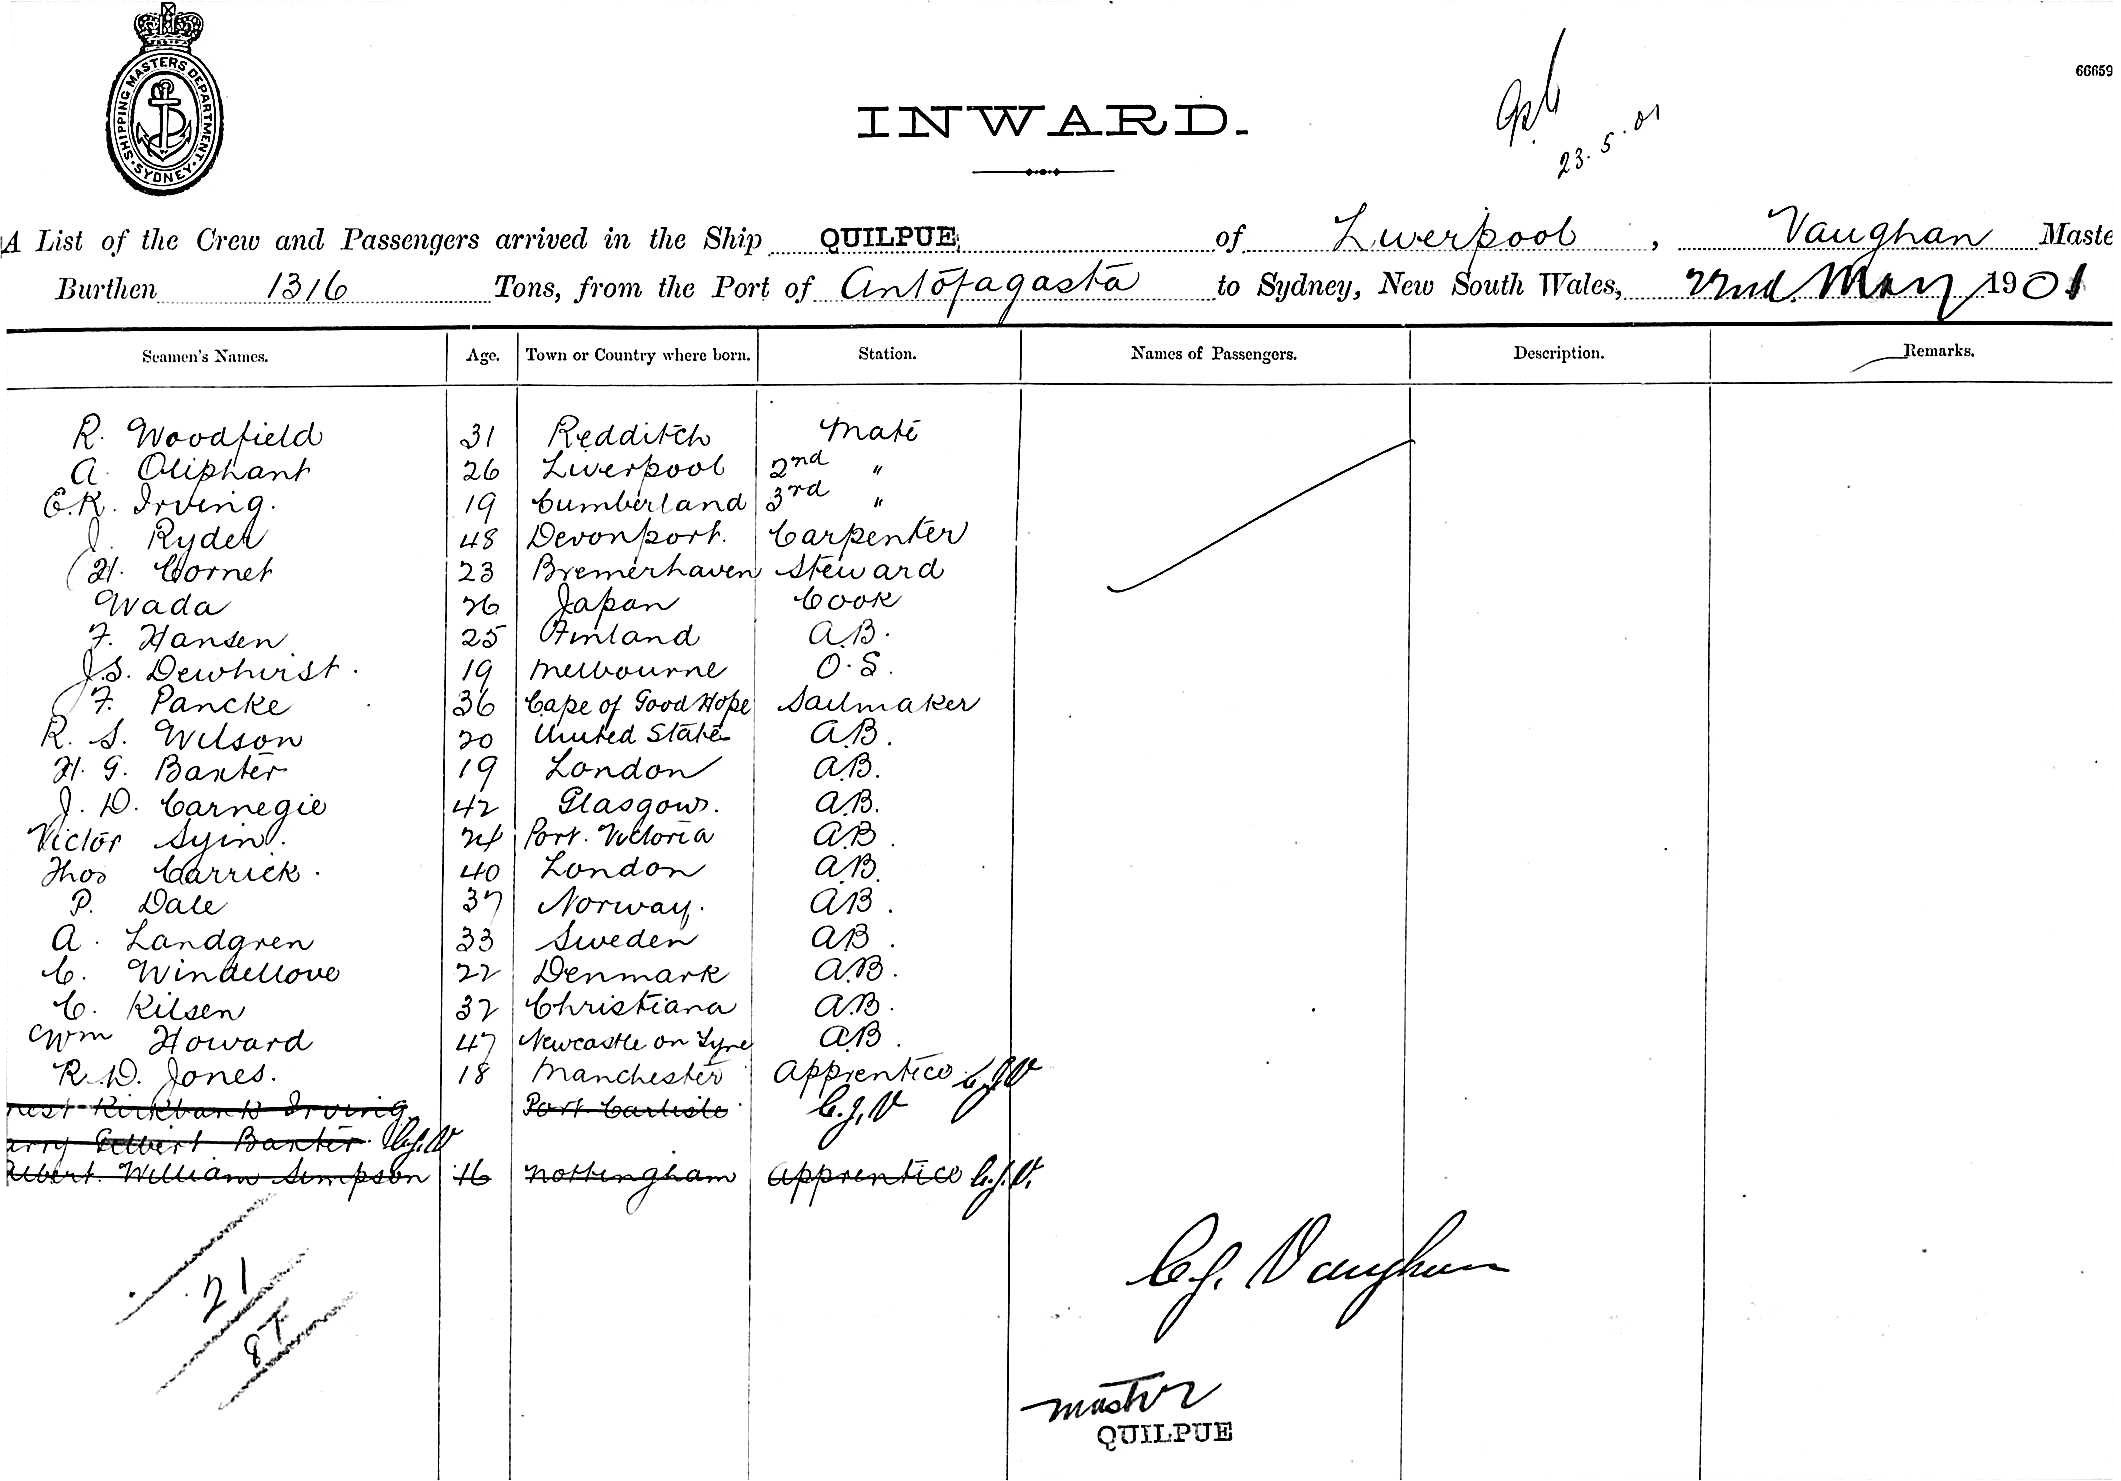 SHIPPING MASTERS DEPARTMENT · SYDNEY ·
66659
INWARD.
23.5.01
A List of the Crew and Passengers arrived in the Ship QUILPUE of Liverpool, Vaughan Maste
Burthen 1316 Tons, from the Port of Antofagasta to Sydney, New South Wales, 22nd May 1901
Seamen's Names. Age. Town or Country where born. Station. Names of Passengers. Description. Remarks.
R. Woodfield 31 Redditch Mate
A. Oliphant 26 Liverpool 2nd "
E.K. Irving. 19 Cumberland 3rd "
J. Ryder 48 Devonport. Carpenter
H. Cornet 23 Bremerhaven Steward
Wada 26 Japan Cook
F. Hansen 25 Finland A.B.
J.S. Dewhirst. 19 Melbourne O.S.
F. Pancke 36 Cape of Good Hope Sailmaker
R. S. Wilson 20 United States A.B.
H. G. Baxter 19 London A.B.
J. D. Carnegie 42 Glasgow. A.B.
Victor Syin. 24 Port. Victoria A.B.
Thos Carrick. 40 London A.B.
P. Dale 37 Norway. A.B.
A. Landgren 33 Sweden A.B.
C. Windellove 22 Denmark A.B.
C. Kilsen 32 Christiana A.B.
Wm Howard 47 Newcastle on Tyne A.B.
R.D. Jones. 18 Manchester Apprentice C.J.V
nest Kirkbank Irving Port Carlisle C.J.V
arry Gilbert Baxter C.J.V
Albert William Simpson 16 Nottingham Apprentice C.J.V.
21
C.J. Vaughan
Master
QUILPUE